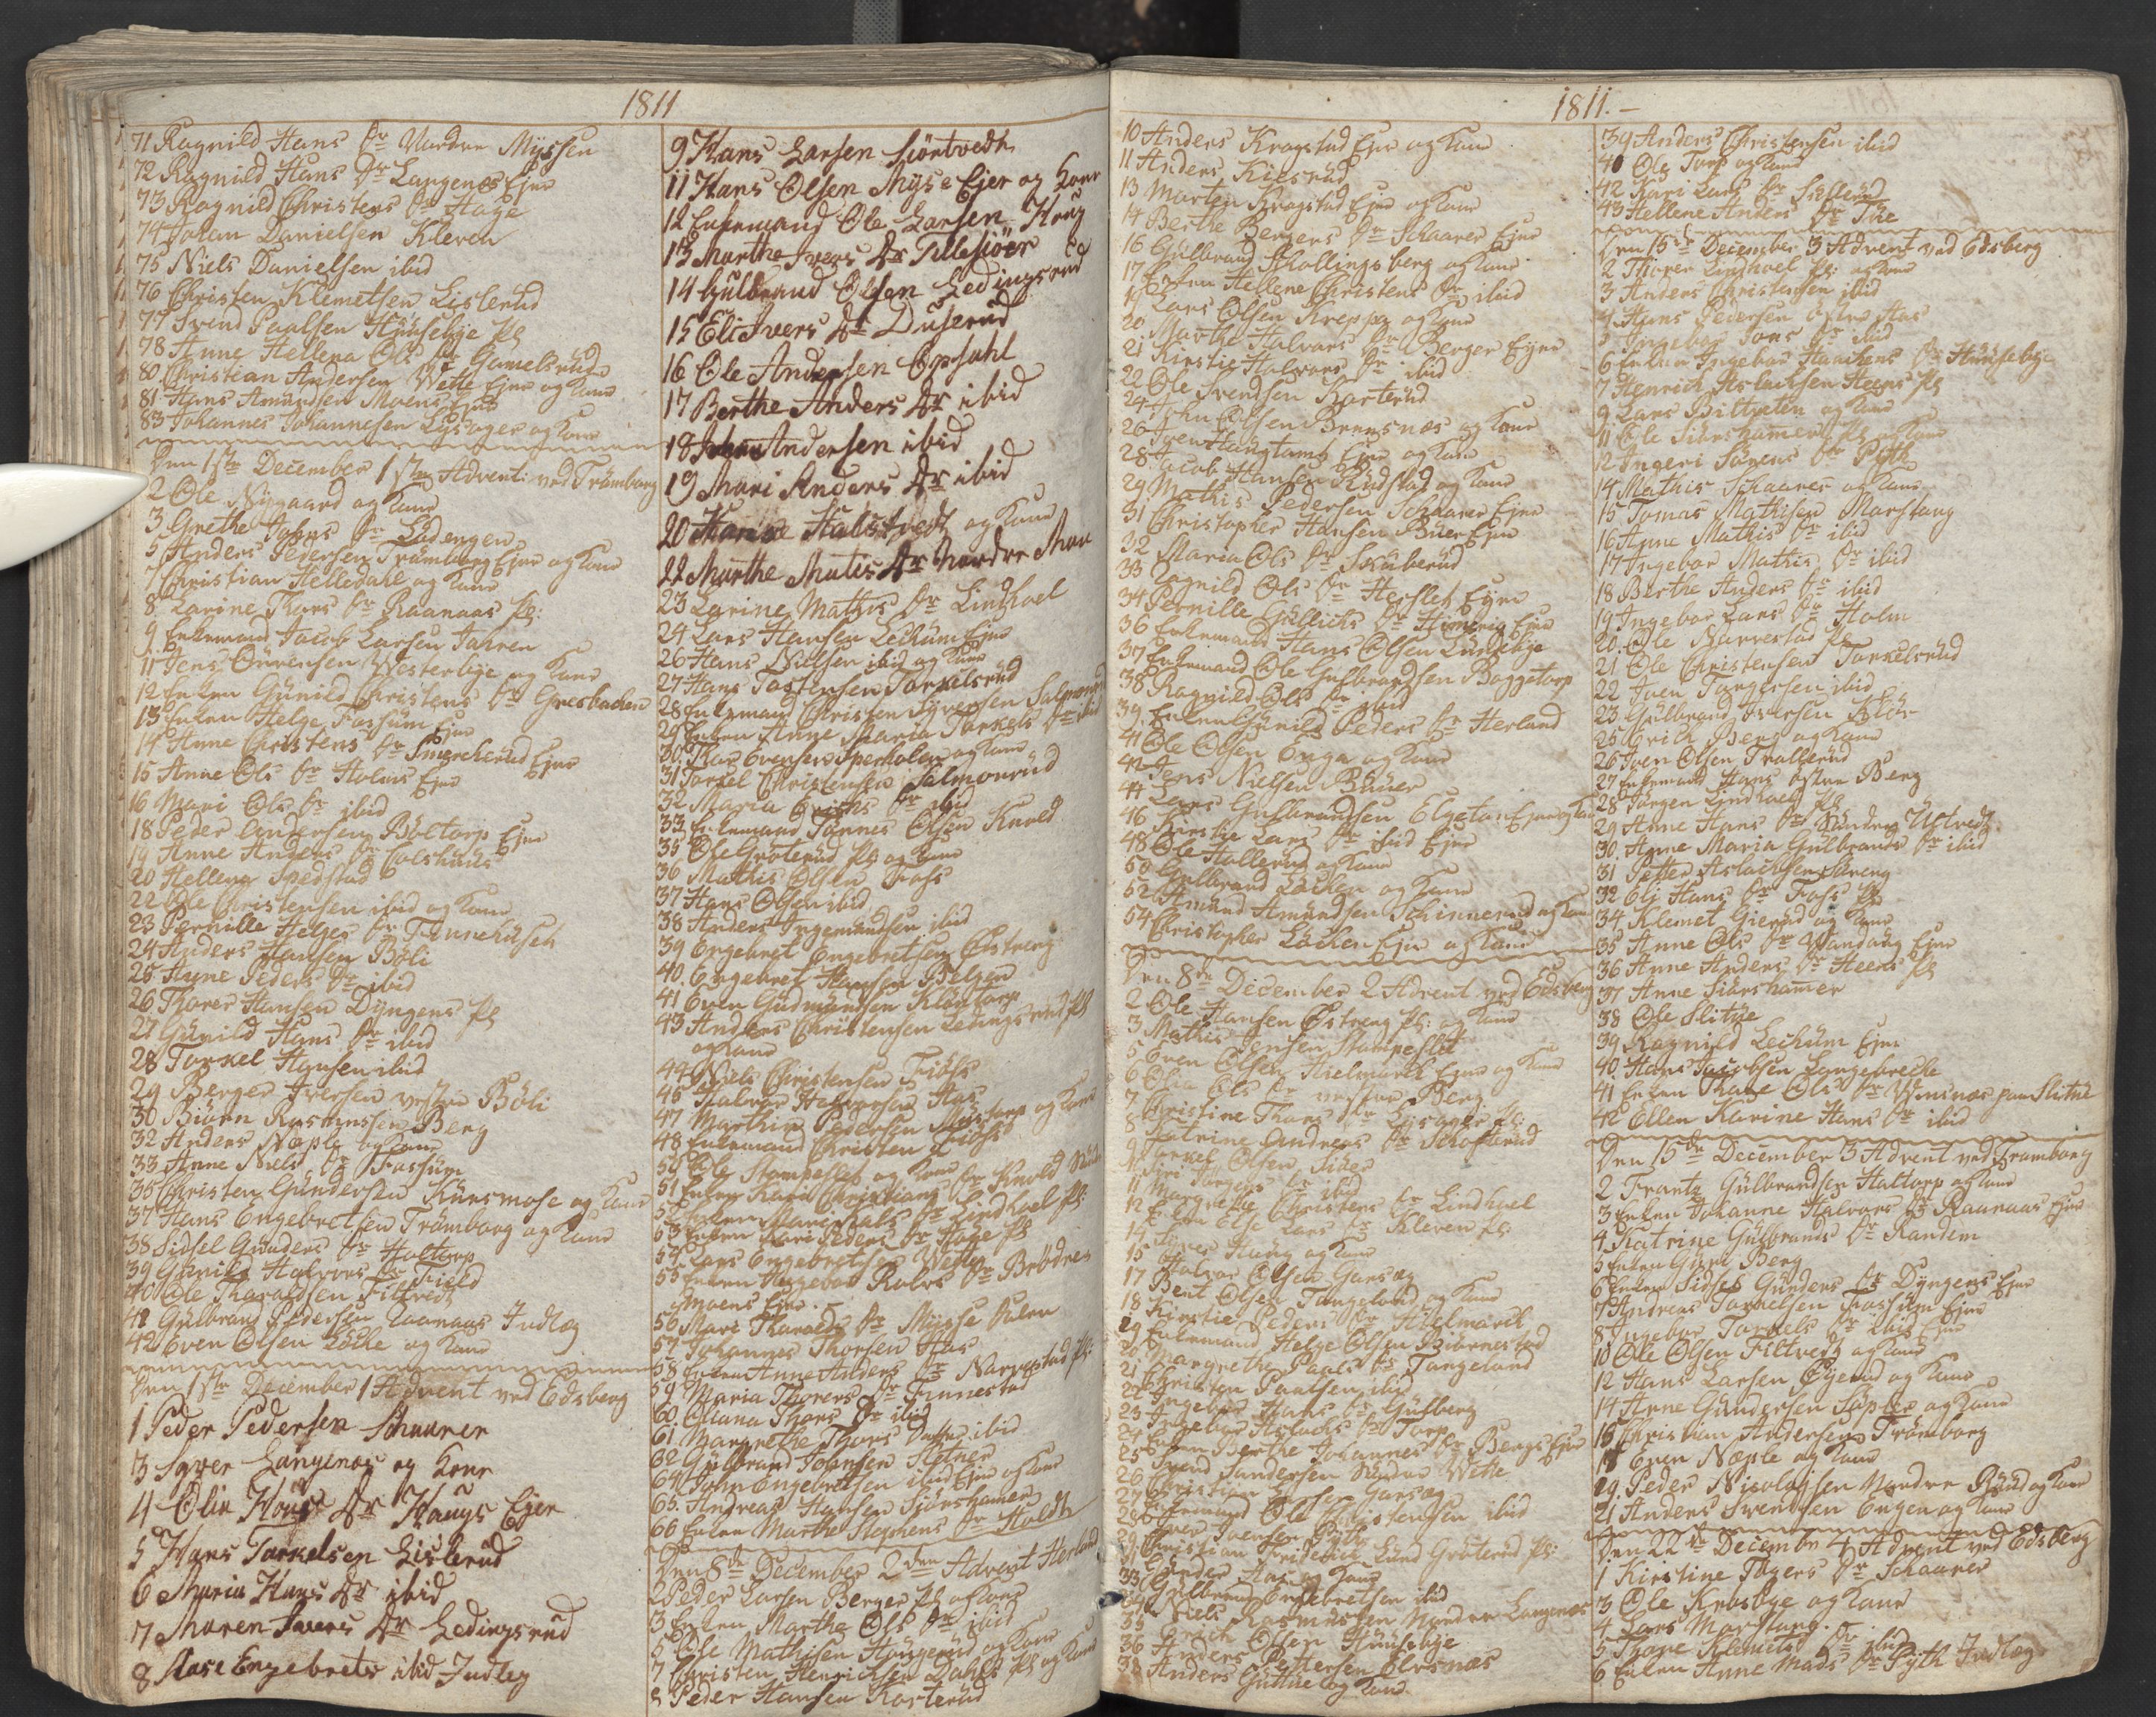 1811
71 Ragnild Hans Dr Nordre Myssen
72 Ragnild Hans Dr Langenes Ejer
73 Ragnild Christens Dr Hage
74 Johan Danielsen Kleven
75 Niels Danielsen ibid
76 Christen Klemetsen Lislerud
77 Svend Paalsen Huusebye Pl
78 Anne Hellena Ols Dr Gamelsrud
80 Christian Andersen Wette Ejer og Kone
81 Hans Amundsen Moens Ejer
83 Johannes Johannesen Lysager og Kone
Den 1ste December 1ste Advent ved Trømborg
2 Ole Nygaard og Kone
3 Grethe Johns Dr Ladengen
5 Anders Pedersen Trømborg Ejer og Kone
7 Christian Helledahl og Kone
8 Larine Thors Dr Raanaas Pl:
9 Enkemand Jacob Larsen Jahren
11 Jens Sörensen Westerbye og Kone
12 Enken Gunild Christens Dr Gresbacken
13 Enken Helge Fossum Ejer
14 Anne Christens Dr Smerckerud Ejer
15 Anne Ols Dr Holms Ejer
16 Mari Ols Dr ibid
18 Peder Andersen Böltorp Ejer
19 Anne Anders Dr Colshuus
20 Hellena Spedstad
22 Ole Christensen ibid og Kone
23 Pernille Helges Dr Finnehuset
24 Anders Hansen Böli
25 Anne Peders Dr ibid
26 Thorer Hansen Dyngens Pl
27 Gunild Hans Dr ibid
28 Torkel Hansen ibid
29 Berger Iversen vestre Böli
30 Biörn Rasmussen Berg
32 Anders Næple og Kone
33 Anne Niels Dr Fossum
35 Christen Gundersen Kuresmose og Kone
37 Hans Engebretsen Trømborg og Kone
38 Sidsel Gunders Dr Haltorp
39 Gunild Halvors Dr Field
40 Ole Haraldsen Filtvedt
41 Gulbrand Pedersen Raanaas Indlæg
42 Even Olsen Löche og Kone
Den 1ste December 1 Advent ved Edsberg
1 Peder Pedersen Schaarer
3 Syver Langenæs og Kone
4 Olia Hans Dr Haugs Ejer
5 Hans Torkelsen Lislerud
6 Maria Hans Dr ibid
7 Maren Ivers Dr Ledingsrud
8 Aase Engebrets ibid Indleg
9 Hans Larsen Siörtvedt
11 Hans Olsen Myse Ejer og Kone
12 Enkemand Ole Larsen Haug
13 Marthe Ivers Dr Tillesiöer
14 Gulbrand Olsen Ledingsrud
15 Eli Ivers Dr Duserud
16 Ole Andersen Opsahl
17 Berthe Anders Dr ibid
18 Johan Andersen ibid
19 Mari Anders Dr ibid
20 Halstvedt og Kone
22 Marthe Matis Dr Nordre Moe
23 Larine Mathis Dr Lindhoel
24 Lars Hansen Leckum Ejer
26 Hans Nielsen ibid og Kone
27 Hans Tostensen Torkelsrud
28 Enkemand Christen Syversen Salmonrud
29 Enken Anne Maria Torkels Dr ibid
30 Thor Evensen Sperholen og Kone
31 Torkel Christensen Salmonrud
32 Maria Erichs Dr ibid
33 Enkemand Tönnes Olsen Knold
35 Ole Gröterud Pl: og Kone
36 Mathis Olsen Foss
37 Hans Olsen ibid
38 Anders Ingemundsen ibid
39 Engebret Engebretsen Östreng
40 Engebret Hansen Belgen
41 Even Gudmundsen Klostorp
43 Anders Christensen Ledingsrud Pl
og Kone
44 Niels Christensen Fiöss
45 Halvor Halvorsen Has
47 Marthin Pedersen Mustorp og Kone
48 Enkemand Christen Fiöss
50 Ole Stompeflet og Kone
51 Enken Kari Christians Dr Knold
52 Enken Mari Hals Dr Lindhoel Pl:
53 Enken Kari Peders Dr Hage Pl
54 Lars Engebretsen Wette
55 Enken Ingebor Rolvs Dr Brødre
Moens Ejer
56 Mari Tharalds Dr Mysse
57 Johannes Thorsen Haes
58 Enken Anne Anders Dr Narvestad Pl:
59 Maria Thorers Dr Finnestad
60 Oliana Thors Dr ibid
61 Margrethe Thors Datter ibid
62 Gulbrand Johnsen Sletner
64 John Engebretsen ibid Ejer og Kone
65 Andreas Hansen Siörshamer
66 Enken Marthe Stephens Dr Holdt
Den 8de December 2den Advent Herland
2 Peder Larsen Berger Pl og Kone
3 Enken Marthe Ols Dr ibid
5 Ole Mathisen Haugerud og Kone
7 Christen Henrichsen Dahl Pl og Kone
8 Peder Hansen Karterud
1811.
10 Anders Kragstad Ejer og Kone
11 Anders Kiesrud
13 Morten Kragstad Ejer og Kone
14 Berthe Bergers Dr Schaarer Ejer
16 Gulbrand Skollingsberg og Kone
17 Enken Hellene Christens Dr ibid
19 Lars Olsen Kreppa og Kone
20 Marthe Halvors Dr Berger Ejer
21 Kirstie Halvors Dr ibid
22 Ole Svendsen Karterud
24 John Olsen Bremsnæs og Kone
26 Iver Haugtomt Ejer og Kone
28 Jacob Hansen Rudstad og Kone
29 Mathis Pedersen Schaarer Ejer
31 Christopher Hansen Buer Ejer
32 Maria Ols Dr Skuberud
33 Ragnild Ols Dr Herslet Ejer
34 Pernille Gullichs Dr Himerig Ejer
36 Enkemand Hans Olsen Lundebye
37 Enkemand Ole Gulbrandsen Baggetorp
38 Ragnild Ols Dr ibid
39 Enken Gunild Peders Dr Herland
41 Ole Olsen Enga og Kone
42 Jens Nielsen Buuer
44 Lars Gulbrandsen Elgeton Ejer og Kone
46 Kirstie Lars Dr ibid Ejer
48 Ole Hallerud og Kone
50 Gulbrand Löchen og Kone
52 Amund Amundsen Schinnerud og Kone
54 Christopher Löchen Ejer og Kone
Den 8de December 2 Advent ved Edsberg
2 Ole Hansen Östreng Pl: og Kone
3 Mathis Jensen Stompeflet
5 Even Olsen Hielmark Ejer og Kone
6 Olia Ols Dr vestre Berg
7 Christine Thors Dr Lysager Pl:
8 Catrine Andreas Dr Schofterud
9 Torkel Olsen Sides
Siri Torgers Dr ibid
11 Margrethe Christens Dr Lindhoel
12 Enken Else Lars Dr Kleven Pl:
14 Haug og Kone
15 Halvor Olsen Garsæg
17 Bent Olsen Tangeland og Kone
18 Kirstie Peders Dr Hielmarck
19 Enkemand Helge Olsen Biörnestad
20 Margrethe Paals Dr Tangeland
21 Christen Paalsen ibid
22 Ingebor Hans Dr Gulberg
23 Ingebor Aslachs Dr Torp
24 Enken Berthe Johannes Dr Bergs Ejer
25 Svend Sandersen søndre Wette
26 Christian Garsæg
28 Enkemand Ole Christensen ibid
Iver Iversen Pyth
Christian Friderich Lund Gröterud Pl:
33 Gunder Aas og Kone
34 Gulbrand Engebretsen ibid
35 Niels Rasmussen Nordre Langenæs
Erich Olsen Huusebye
36 Anders Pettersen Elvsnæs
38 Anders Guttue og Kone
39 Anders Christensen ibid
40 Ole Torp og Kone
42 Kari Lars Dr Sletterud
43 Hellene Anders Dr The
Den 15de December 3 Advent ved Edsberg
2 Thorer Lindhoel Pl: og Kone
3 Anders Christensen ibid
4 Hans Pedersen østre Aas
5 Ingebor Jons Dr ibid
6 Enken Ingebor Haachens Dr Huusebye
7 Henrich Aslachsen Heens Pl
9 Lars Biltveten og Kone
11 Ole Siörshamer Pl og Kone
12 Ingeri Sörens Dr Pyth
14 Mathis Schaarer og Kone
15 Tomas Mathisen Morstang
16 Anne Mathis Dr ibid
17 Ingebor Mathis Dr ibid
18 Berthe Anders Dr ibid
19 Ingebor Lars Dr Holm
20 Ole Narrestad Pl
21 Ole Christensen Torkelsrud
22 Iver Torgersen ibid
23 Gulbrand Iversen Flör
25 Erich Berg og Kone
26 Iver Olsen Trollerud
27 Enkemand Hans østre Berg
28 Jørgen Lindhoel Pl
29 Anne Hans Dr Søndre Ustvedt
30 Anne Maria Gulbrands Dr ibid
31 Petter Aslachsen Østreng
32 Eli Hans Dr Foss Pl
34 Klemet Gierud og Kone
35 Anne Ols Dr Wandaug Ejer
36 Anne Anders Dr Heens Pl
37 Anne Siörshamer
38 Ole Slitue
39 Ragnild Leckum Ejer
40 Hans Jacobsen Langebreche
41 Enken Thore Ols Dr Weninæs paa Slitue
42 Ellen Karine Hans Dr ibid
Den 15de December 3 Advent ved Tromborg
2 Frantz Gulbrandsen Haltorp og Kone
3 Enken Johanne Halvors Dr Raanaas Ejer
4 Katrine Gulbrands Dr Randem
5 Enken Guri Berg
6 Enken Sidsel Gunders Dr Dyngens Ejer
7 Andreas Torkelsen Fossum Ejer
8 Ingebor Torkels Dr ibid Ejer
10 Ole Olsen Filtvedt og Kone
12 Hans Larsen Öyerud og Kone
14 Arne Gundersen Söpler og Kone
15 Christian Andersen Trömborg
18 Even Næple og Kone
19 Peder Nicolaisen Nordre Ruud og Kone
21 Anders Svendsen Engen og Kone
Den 22de December 4 Advent ved Edsberg
1 Kirstine Tygers Dr Schaarer
3 Ole Krosbye og Kone
4 Lars Morstang
5 Thore Klemets Dr ibid
6 Enken Anne Mads Dr Pyth Indlæg